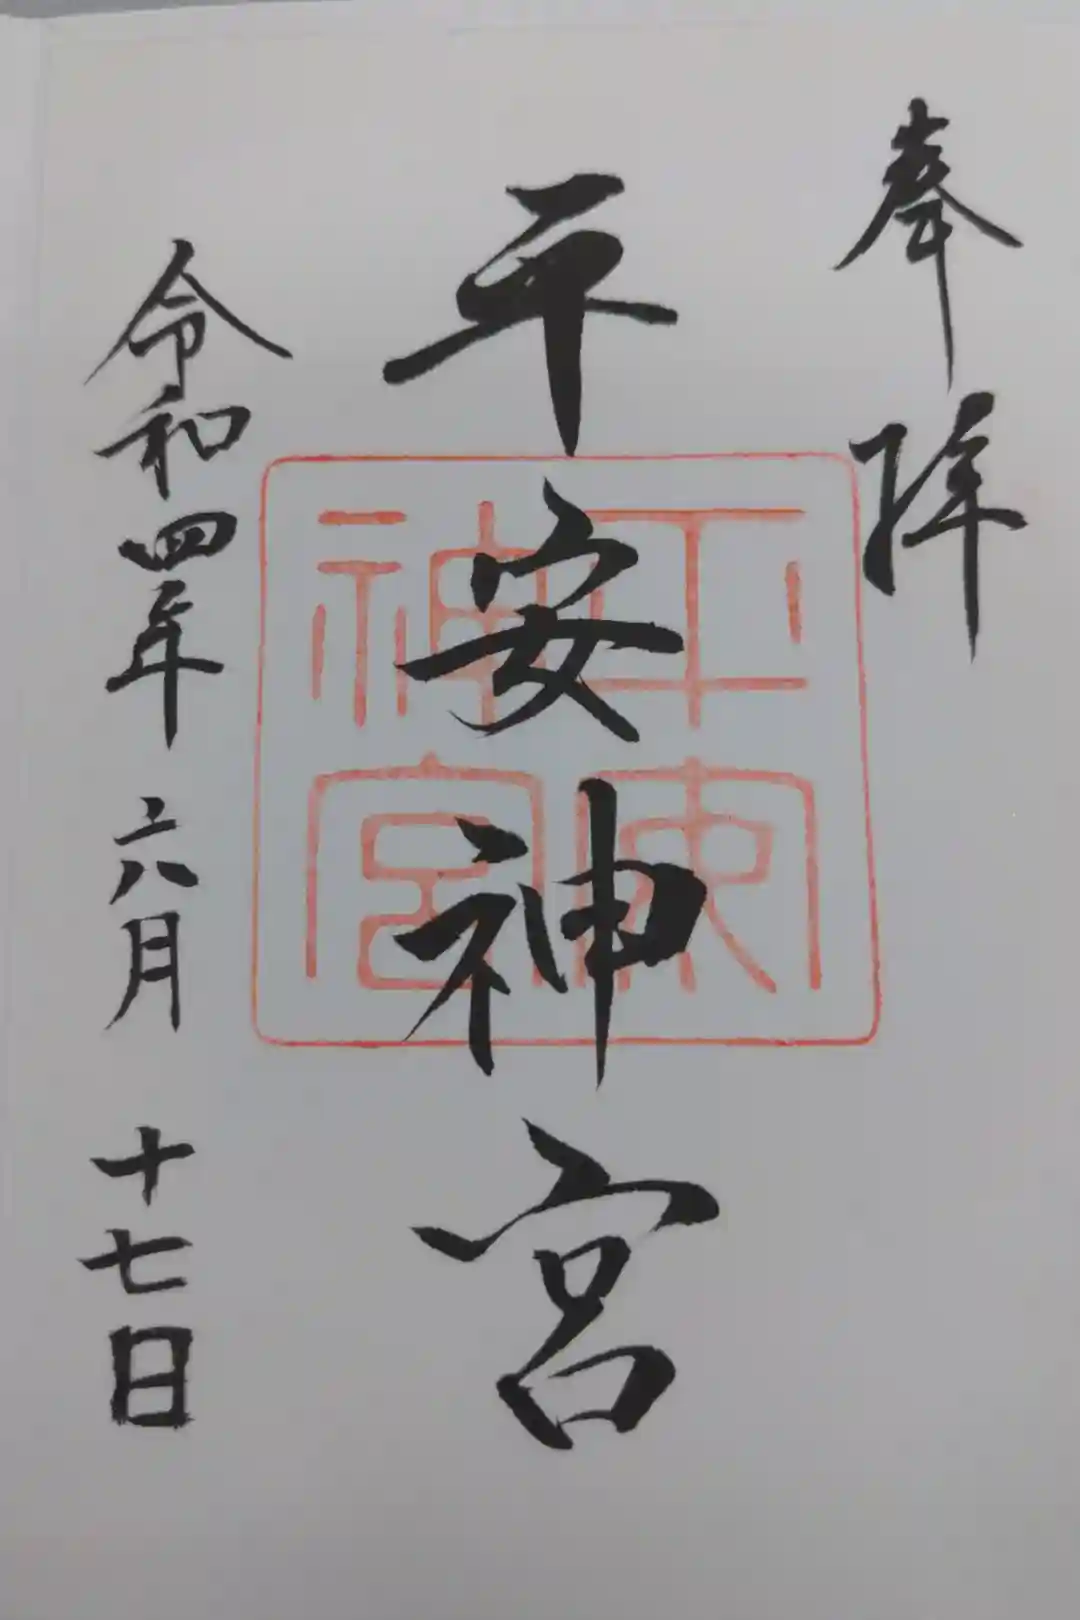 奉拝
平安神宮
平安神宮
令和四年六月十七日